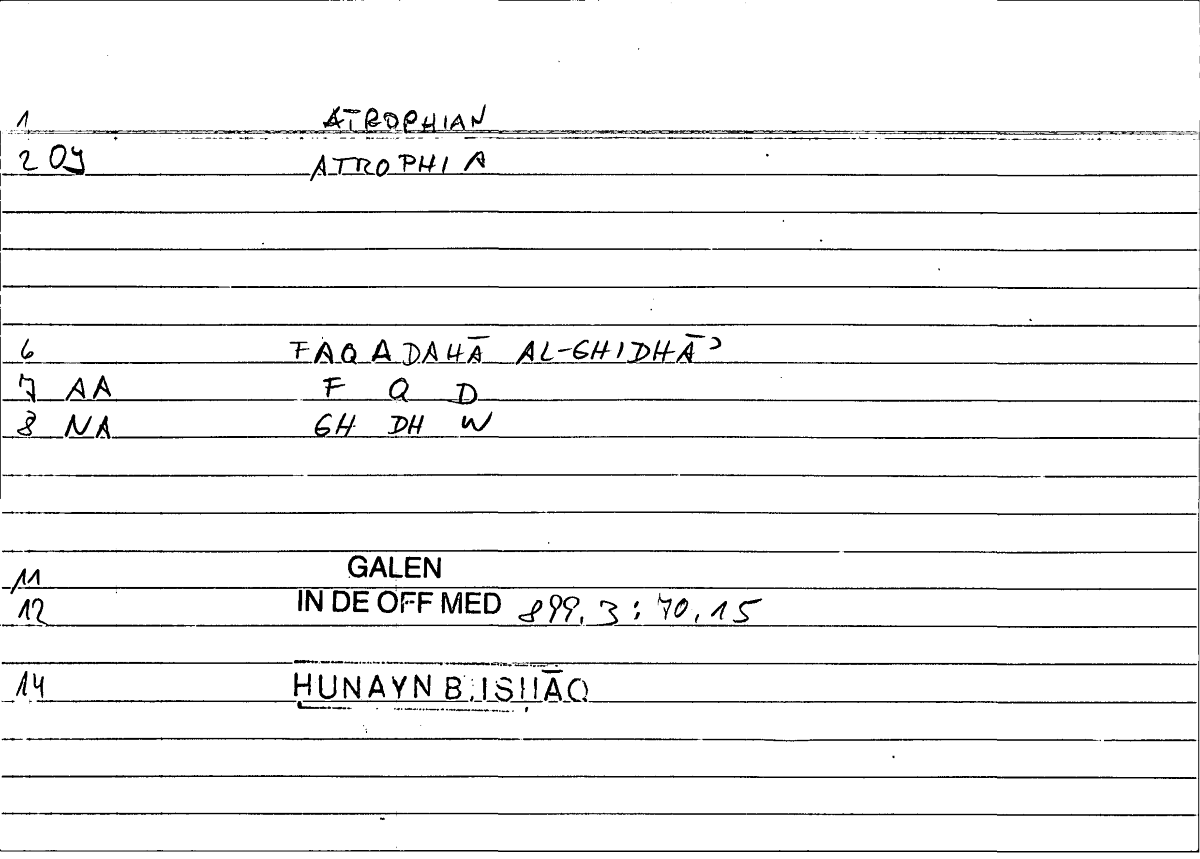 1 ATROPHIAN
2 OY ATROPHIA
6 FAQADAHĀ AL-GHIDHĀʾ
7 AA F Q D
8 NA GH DH W
11 GALEN
12 IN DE OFF MED 899,3 : 70,15
14 HUNAYN B. ISḤĀQ